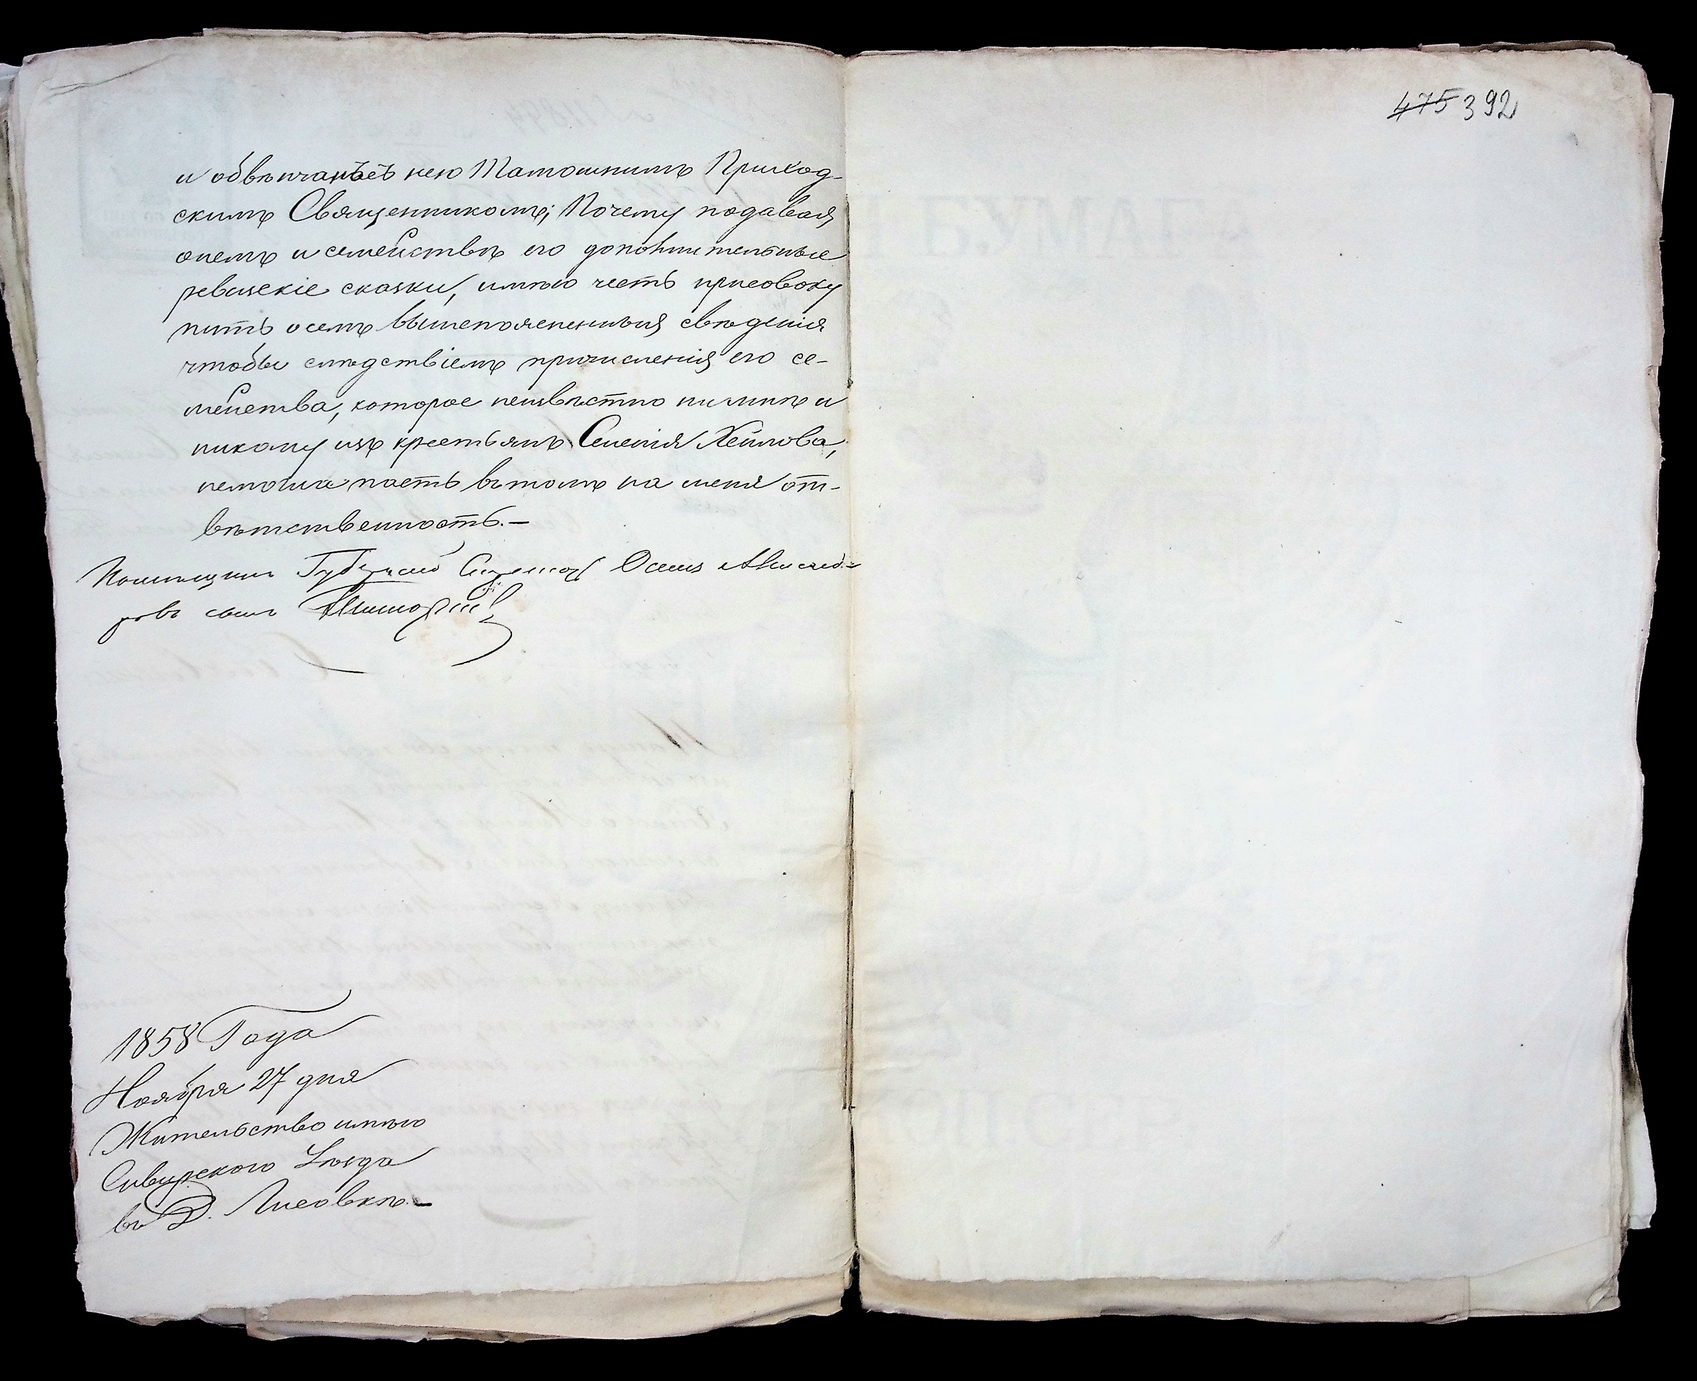 и обвѣнчанъ съ нею Тамошнимъ Приход-
скимъ Священникомъ; Почему подавая
онемъ и семействѣ его дополнительные
ревизскіе сказки, имѣю честь присовоку
пить о семъ вышепоясненныя свѣденія
чтобы слѣдствіемъ причисленія его се-
мейства, которое неизвѣстно ни мнѣ и
никому изъ крестьянъ Селенія Хейлова,
немогла пасть вътомъ на меня от-
вѣтственность.—
Помѣщикъ Губернскій Секретарь Осипъ Александ-
ровъ сынъ
1858 Года
Ноября 27 дня
Жительство имѣю
Уѣзда
въ Д. Лисовкѣ.—
475 392